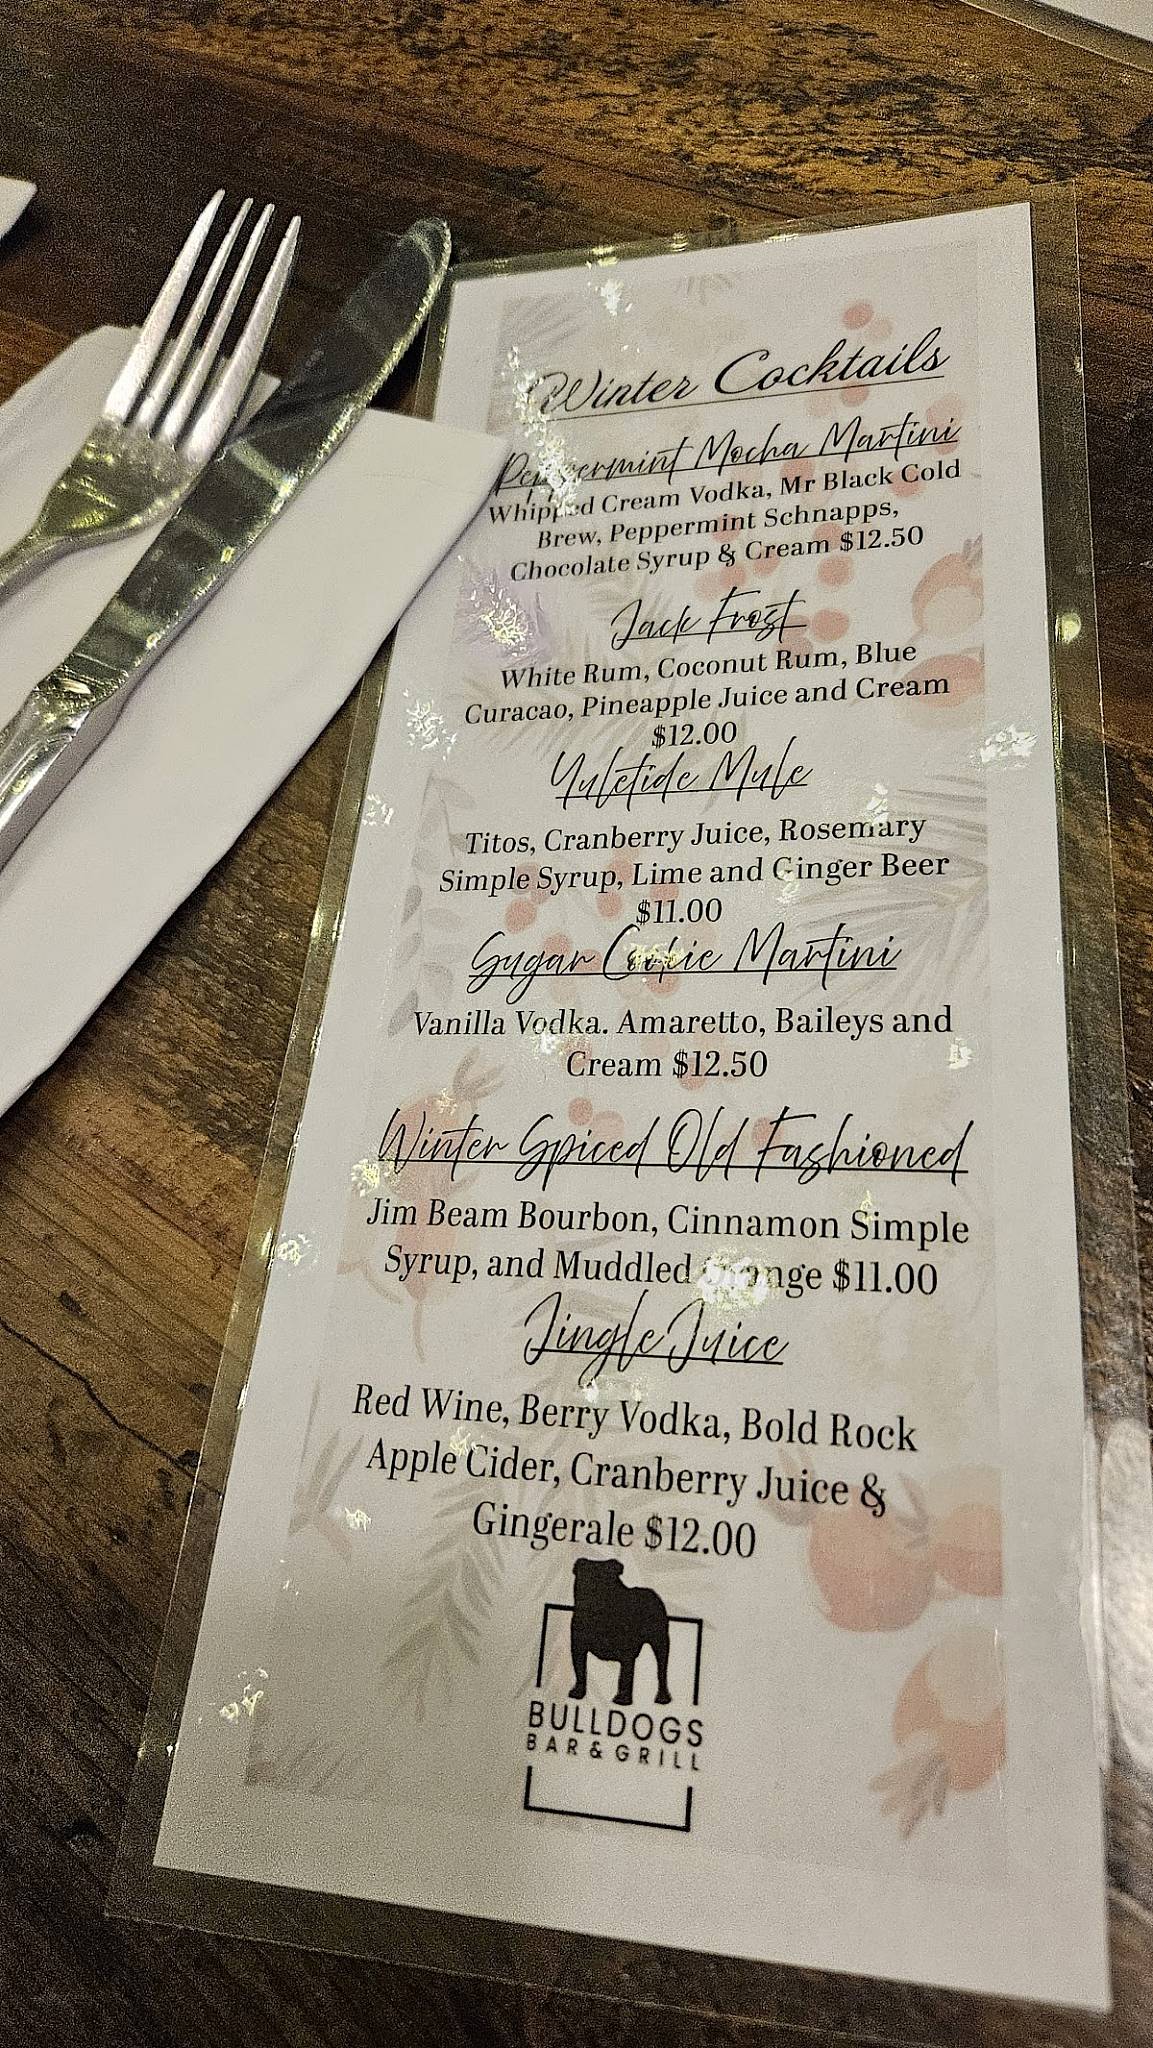 Winter Cocktails
Peppermint Mocha Martini
Whipped Cream Vodka, Mr Black Cold
Brew, Peppermint Schnapps,
Chocolate Syrup & Cream $12.50
Jack Frost
White Rum, Coconut Rum, Blue
Curacao, Pineapple Juice and Cream
$12.00
Yuletide Mule
Titos, Cranberry Juice, Rosemary
Simple Syrup, Lime and Ginger Beer
$11.00
Sugar Cookie Martini
Vanilla Vodka. Amaretto, Baileys and
Cream $12.50
Winter Spiced Old Fashioned
Jim Beam Bourbon, Cinnamon Simple
Syrup, and Muddled Orange $11.00
Jingle Juice
Red Wine, Berry Vodka, Bold Rock
Apple Cider, Cranberry Juice &
Gingerale $12.00
BULLDOGS
BAR & GRILL